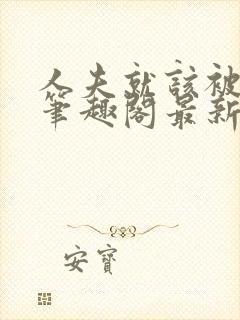 人夫就該被
筆趣閣最新
安寶